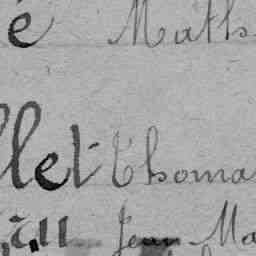 é Math
llet Thoma
Jean Ma